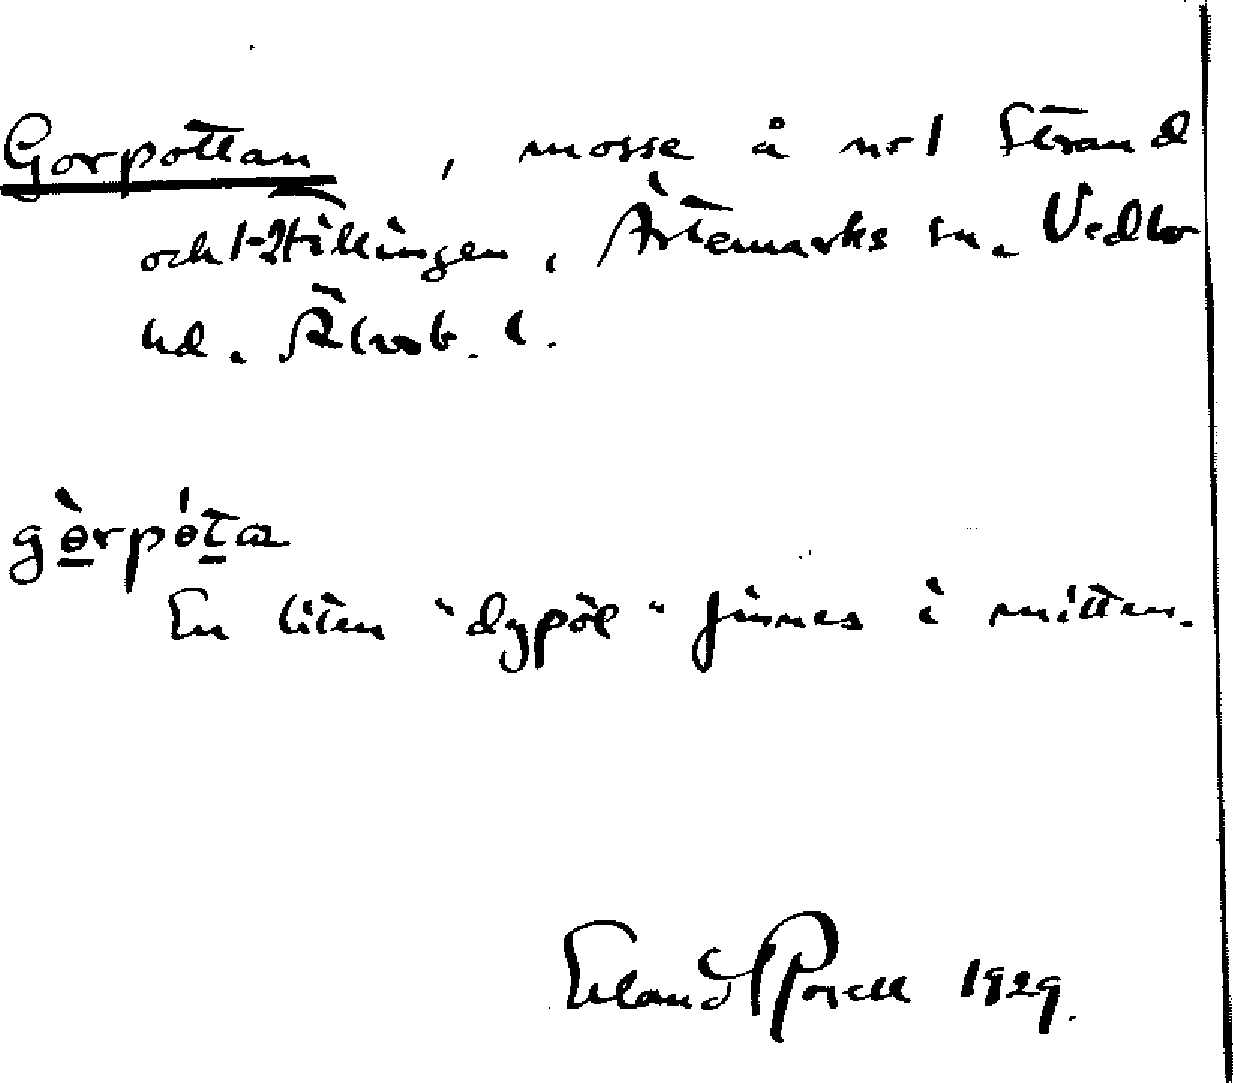 Gorpottan, mosse å nr 1 Strand
och 1 Hillingen, Ärtemarks sn. Vedbo
hd. Älvsb. l.
gèrpóta
En liten "dypöl" finnes i mitten.
Erland Rosell 1929.